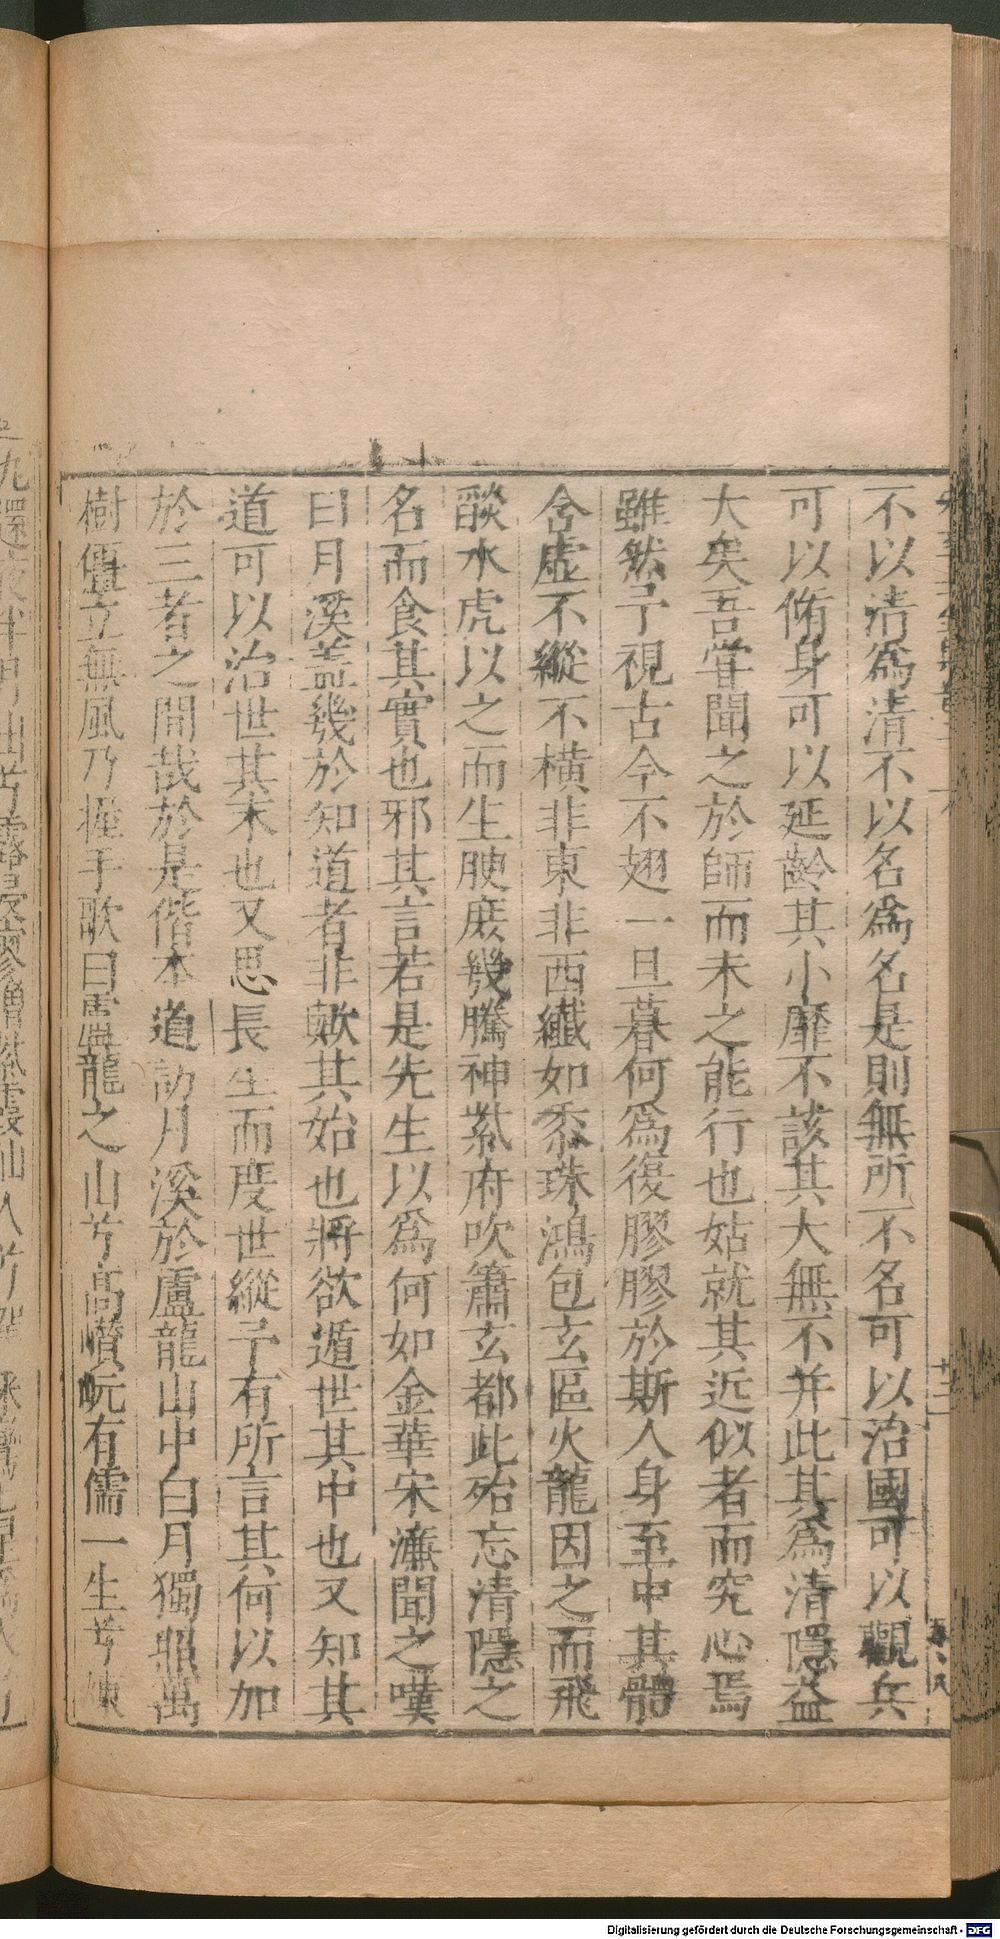 不以清爲清不以名爲名是則無所不名可以治國可以觀兵
可以脩身可以延齡其小靡不該其大無不并此其爲清隱益
大矣吾甞聞之於師而未之能行也姑就其近似者而究心焉
雖然予視古今不翅一旦暮何爲復膠膠於斯人身至中其體
含虛不縱不橫非東非西纖如黍珠鴻包玄區火龍因之而飛
燄水虎以之而生腴庶幾騰神紫府吹簫玄都此殆忘清隱之
名而食其實也邪其言若是先生以爲何如金華宋濂聞之嘆
曰月溪蓋幾於知道者非歟其始也將欲遁世其中也又知其
道可以治世其末也又思長生而度世縱予有所言其何以加
於三者之間哉於是偕本道訪月溪於盧龍山中白月獨照萬
樹僵立無風乃握手歌曰龍之山兮高巑岏有儒一生兮
十二
Digitalisierung gefördert durch die Deutsche Forschungsgemeinschaft - DFG